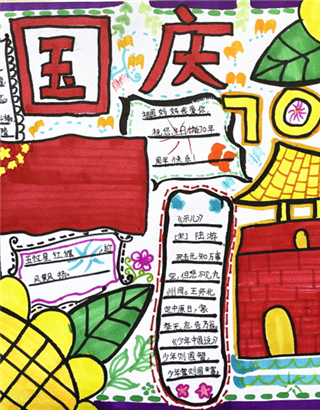 国庆
祖国妈妈我爱你
祝您生日快乐70年
周年快乐!
70
五星红旗
风飘扬
《示儿》
[宋] 陆游
死去元知万事
空,但悲不见九
州同。王师北
定中原日,家
祭无忘告乃翁
《少年中国说》
少年则国智
少年富则国富